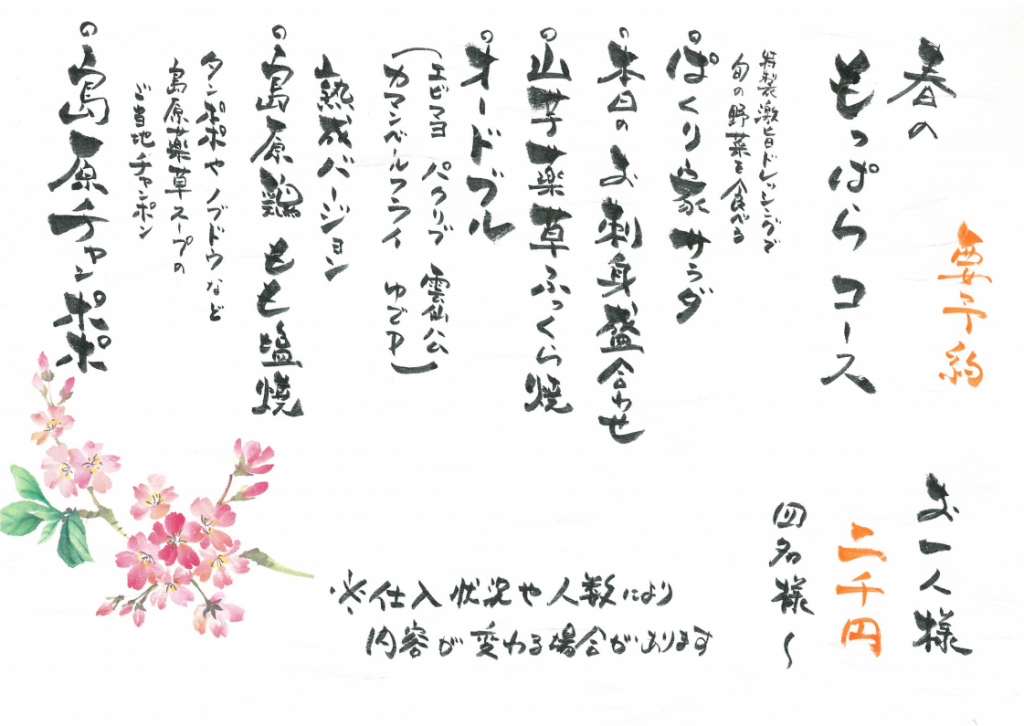 春の
もっぱらコース
要予約
お一人様
二千円
四名様〜
特製激旨ドレッシングで
旬の野菜を食べる
◦ぱくり家サラダ
◦本日のお刺身盛合わせ
◦山芋薬草ふっくら焼
◦オードブル
（エビマヨ パクリブ 雲仙ハム
カマンベールフライ ゆでP）
熟成バージョン
◦島原鶏もも塩焼
タンポポやノブドウなど
島原薬草スープの
ご当地チャンポン
◦島原チャンポポ
※仕入状況や人数により
内容が変わる場合があります